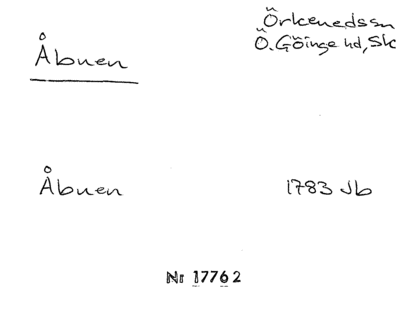 Örkenedssn
Ö. Göinge hd, Sk
Åbnen
Åbnen 1783 Jb
Nr 17762